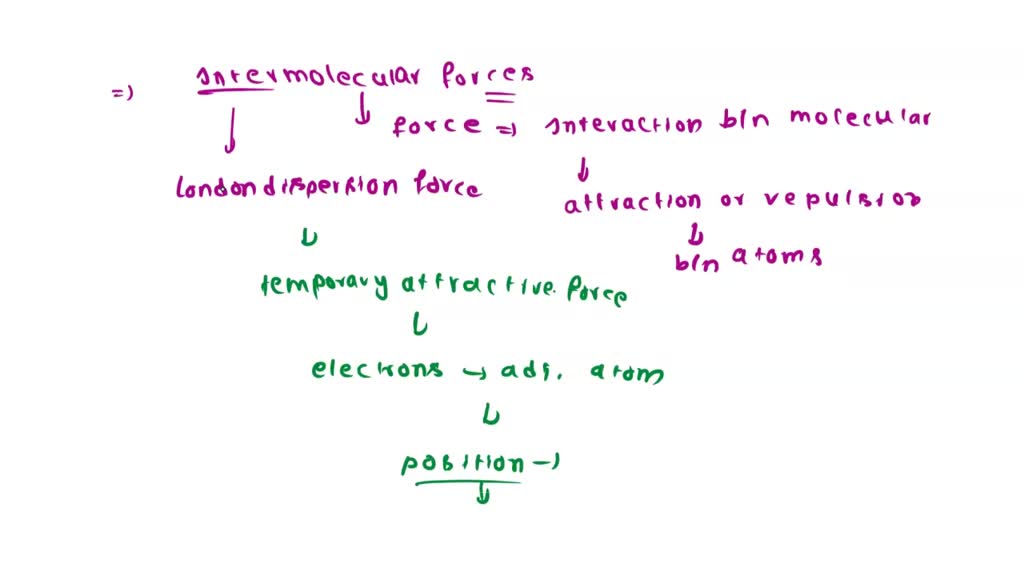 =) Intermolecular forces
force => Interaction b/n molecular
London dispersion force
attraction or repulsion
b/n atoms
temporary attractive force
electrons → adj. atom
position →